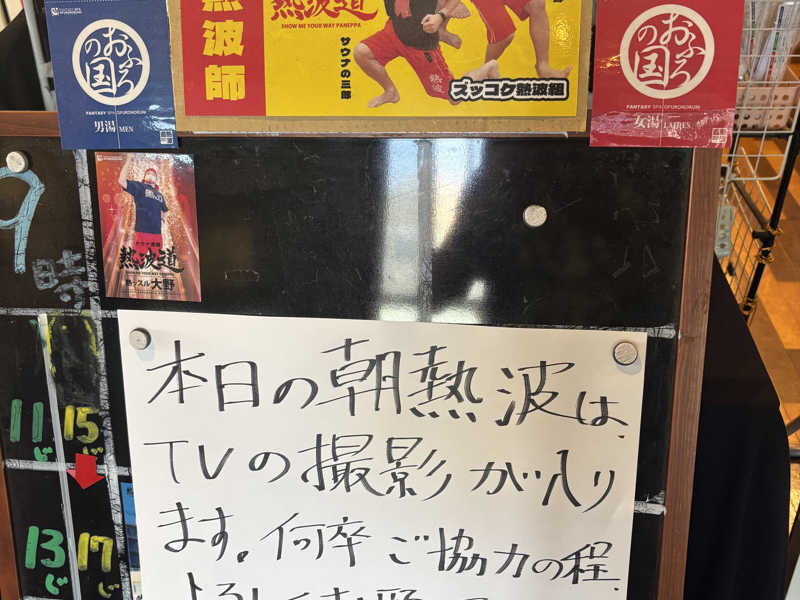 おふろの国
FANTASY SPA OFURONOKUNI
男湯 MEN
熱波師
熱波道
SHOW ME YOUR WAY PANEPPA
サウナの三郎
ズッコケ熱波組
おふろの国
FANTASY SPA OFURONOKUNI
女湯 LADIES
9時
サウナ宿題
熱波道
熱ッスル大野
11じ
15じ
13じ
17じ
本日の朝熱波は、
TVの撮影が入り
ます。何卒ご協力の程、
よろしくお願